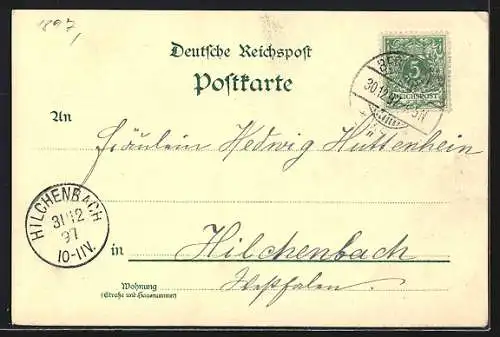 1897
Deutsche Reichspost
Postkarte
5
REICHSPOST
30.12.97
An
Fräulein Hedwig Hüttenhein
HILCHENBACH
31 12
97
10-11V.
in Hilchenbach
Westfalen.
Wohnung
(Straße und Hausnummer)